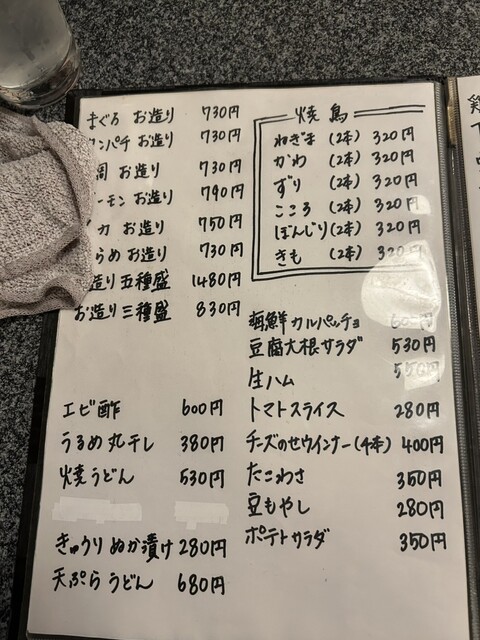 まぐろ お造り 730円
ンパチ お造り 730円
お造り 730円
ーモン お造り 790円
カ お造り 750円
らめ お造り 730円
造り 五種盛 1480円
お造り 三種盛 830円
エビ酢 600円
うるめ 丸干し 380円
焼うどん 530円
きゅうり ぬか漬け 280円
天ぷら うどん 680円
焼鳥
ねぎま (2本) 320円
かわ (2本) 320円
ずり (2本) 320円
こころ (2本) 320円
ぼんじり (2本) 320円
きも (2本) 320円
海鮮 カルパッチョ
豆腐大根サラダ 530円
生ハム 550円
トマトスライス 280円
チーズのせウインナー (4本) 400円
たこわさ 350円
豆もやし 280円
ポテトサラダ 350円
鶏